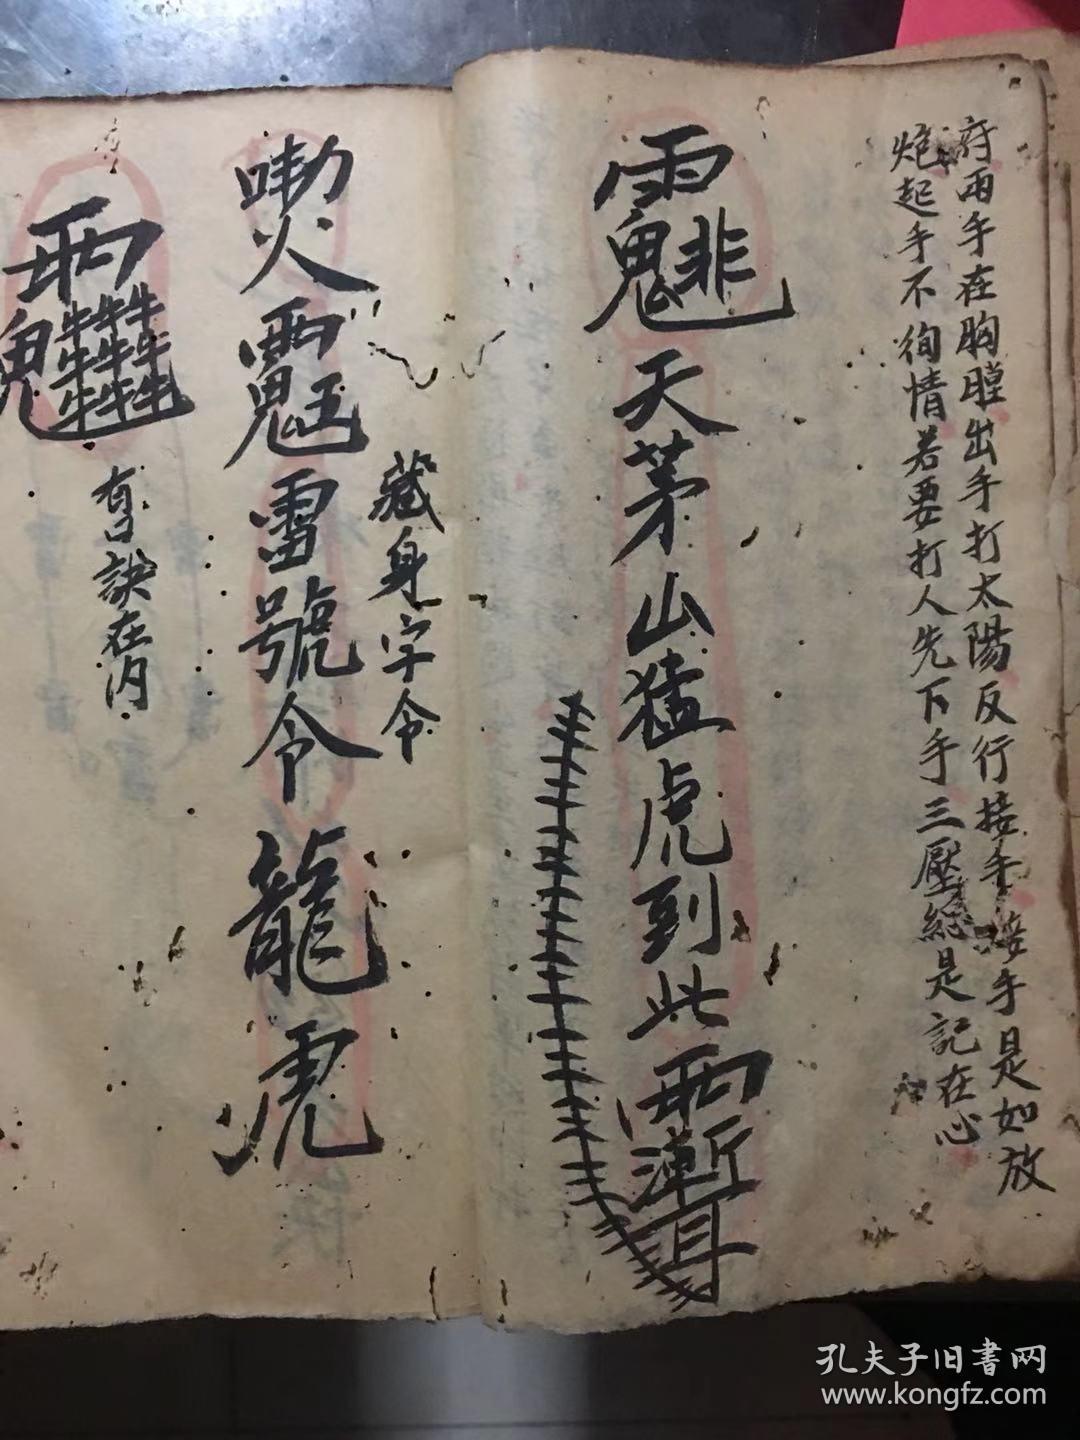 府両手在胸膛出手打太陽反行接手接手是如放
炮起手不徇情若要打人先下手三壓総是記在心
天茅山猛虎到此
藏身字令
雷號令龍虎
有口訣在内
孔夫子旧書网
www.kongfz.com